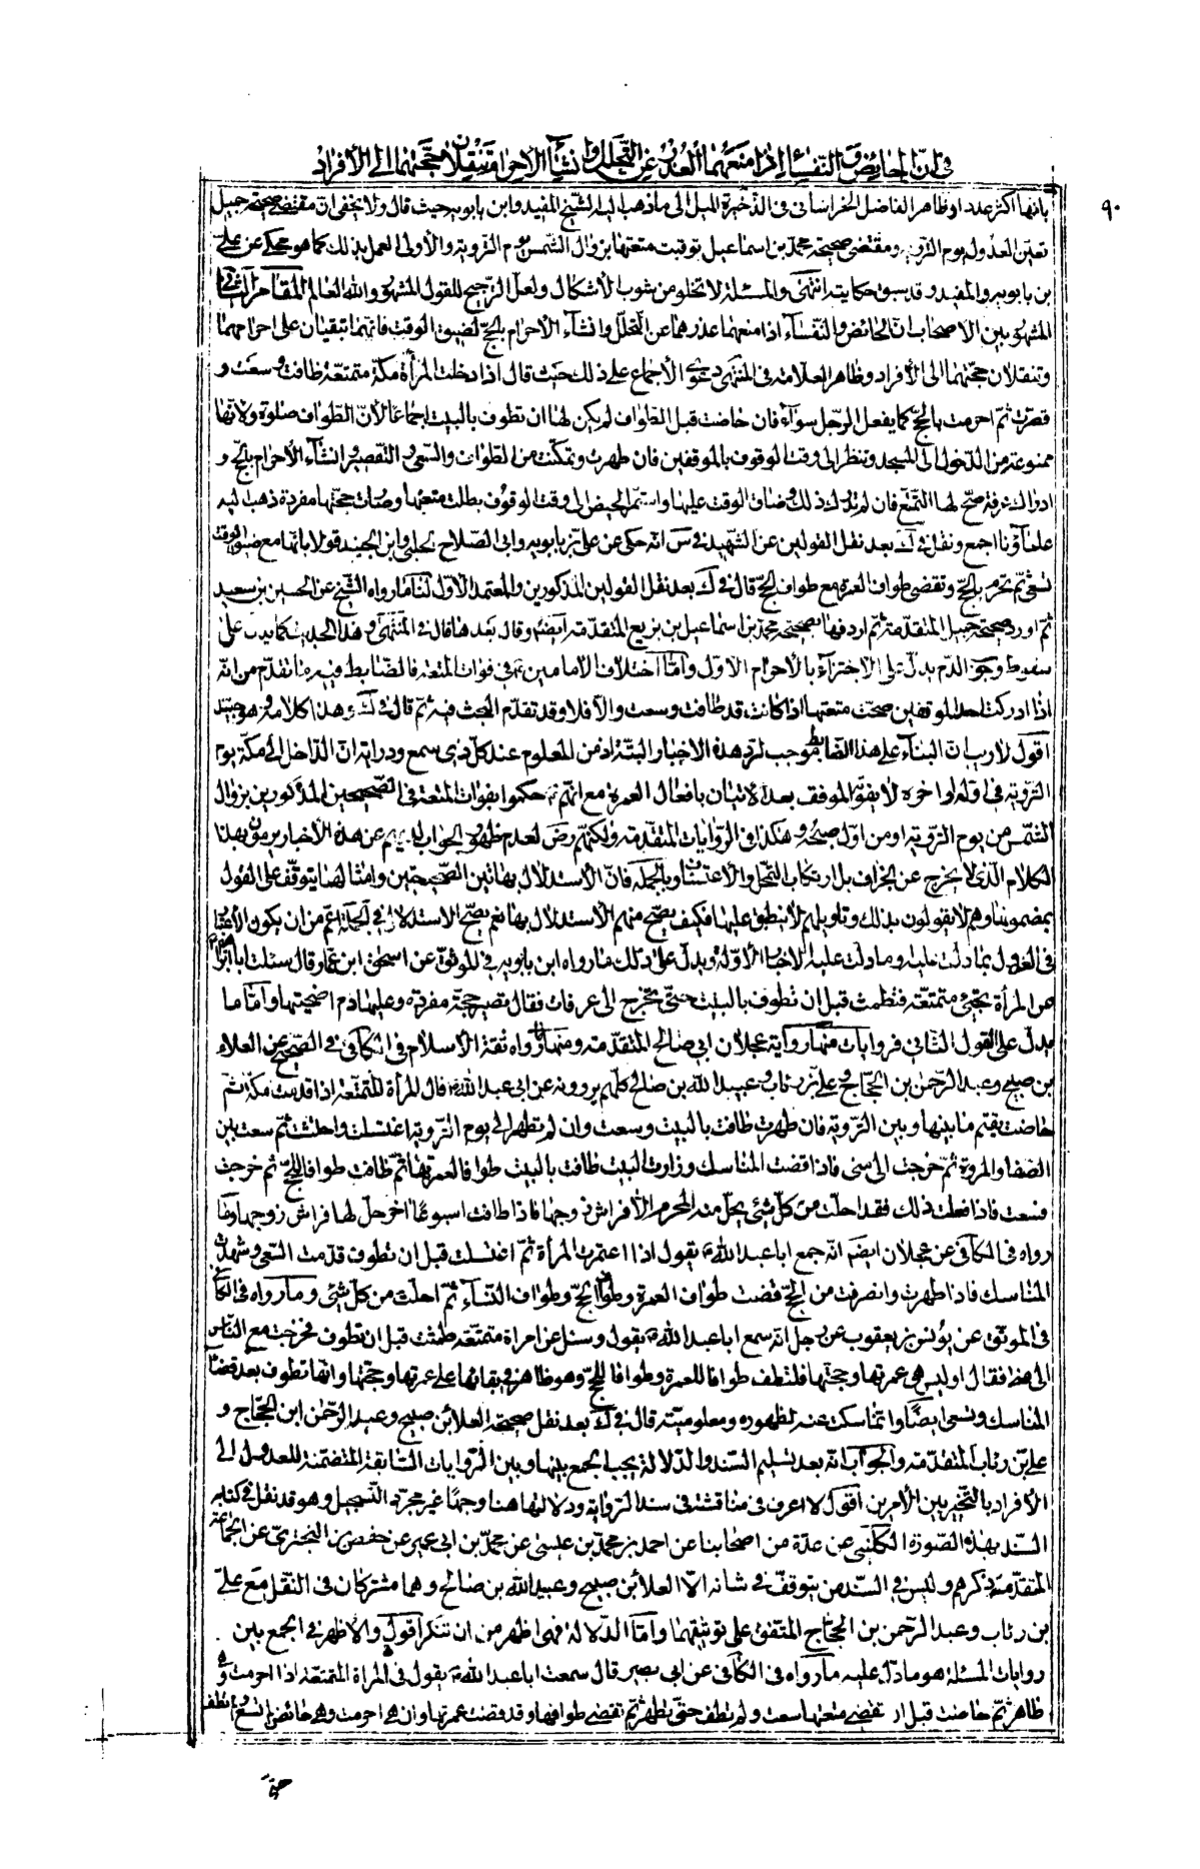 في ان الحائض والنفساء اذا منعهما العذر عن التحلل وانشاء الاحرام تنقلان حجتهما الى الأفراد
٩٠
بانها اكثر عددا وظاهر الفاضل الخراساني في الذخيرة الميل الى ما ذهب اليه الشيخ المفيد وابن بابويه حيث قال ولا يخفى ان مقتضى صحيحة جميل
تعين العدول يوم التروية ومقتضى صحيحة محمد بن اسماعيل توقيت متعتها بزوال الشمس يوم التروية والأولى العمل بذلك كما هو محكي عن علي
بن بابويه والمفيد وقد سبق حكايته انتهى والمسئلة لا تخلو من شوب الأشكال ولعل الترجيح للقول المشهور والله العالم المقام الثاني
المشهور بين الاصحاب ان الحائض والنفساء اذا منعهما عذرهما عن التحلل وانشاء الأحرام بالحج لضيق الوقت فانهما تبقيان على احرامهما
وتنقلان حجتهما الى الأفراد وظاهر العلامة في المنتهى دعوى الأجماع على ذلك حيث قال اذا دخلت المرأة مكة متمتعة طافت وسعت و
قصرت ثم احرمت بالحج كما يفعل الرجل سواء فان حاضت قبل الطواف لم يكن لها ان تطوف بالبيت اجماعا لأن الطواف صلوة ولأنها
ممنوعة من الدخول الى المسجد وتنظر الى وقت الوقوف بالموقفين فان طهرت وتمكنت من الطواف والسعي والتقصير وانشاء الأحرام بالحج و
ادراك عرفة صح لها التمتع فان لم تدرك ذلك وضاق الوقت عليها واستمر الحيض الى وقت الوقوف بطلت متعتها وصارت حجتها مفردة ذهب اليه
علماؤنا اجمع ونقل في ك بعد نقل القولين عن الشهيد في س انه حكى عن علي بن بابويه وابي الصلاح الحلبي وابن الجنيد قولا بانها مع ضيق الوقت
تسعى ثم تحرم بالحج وتقضي طواف العمرة مع طواف الحج قال في ك بعد نقل القولين المذكورين والمعتمد الأول لنا ما رواه الشيخ عن الحسين بن سعيد
ثم اورد صحيحة جميل المتقدمة ثم اردفها بصحيحة محمد بن اسماعيل بن بزيع المتقدمة ايضا وقال بعدها قال في المنتهى وهذا الحديث كما يدل على
سقوط وجوب الدم يدل على الاجتزاء بالأحرام الأول وأما اختلاف الامامين في فوات المتعة فالضابط فيه ما تقدم من انه
اذا ادركت احد الموقفين صحت متعتها اذا كانت قد طافت وسعت والا فلا وقد تقدم البحث فيه ثم قال في ك وهذا كلامه وهو جيد
اقول لا ريب ان البناء على هذا الضابط موجب لرد هذه الاخبار البتة اذ من المعلوم عند كل ذي سمع ودراية ان الداخل الى مكة يوم
التروية في اوله او اخره لا يفوته الموقف بعد الاتيان بافعال العمرة مع انهم حكموا بفوات المتعة في الصحيحين المذكورين بزوال
الشمس من يوم التروية او من اول صبحه وهكذا في الروايات المتقدمة ولكنهم رض لعدم ظهور الجواب لديهم عن هذه الأخبار يرمون بهذا
الكلام الذي لا يخرج عن الجزاف بل ارتكاب التمحل والأعتساف وبالجملة فان الاستدلال بهاتين الصحيحتين وامثالهما يتوقف على القول
بمضمونها وهم لا يقولون بذلك وتاويلهم لا ينطبق عليها فكيف يصح منهم الأستدلال بها نعم يصح الاستدلال في الجملة اعم من ان يكون الأعتبار
في العدول بما دلت عليه وما دلت عليه الاخبار الأولة ويدل على ذلك ما رواه ابن بابويه في الموثق عن اسحق ابن عمار قال سئلت ابا ابراهيم
عن المرأة تجيء متمتعة فتطمث قبل ان تطوف بالبيت حتى تخرج الى عرفات فقال تصير حجة مفردة وعليها دم اضحيتها وأما ما
يدل على القول الثاني فروايات منها رواية عجلان ابي صالح المتقدمة ومنها ما رواه ثقة الأسلام في الكافي في الصحيح عن العلاء
بن صبيح وعبد الرحمن بن الحجاج وعلي بن رئاب وعبيد الله بن صالح كلهم يروونه عن ابي عبد الله ع قال المرأة المتمتعة اذا قدمت مكة ثم
حاضت تقيم ما بينها وبين التروية فان طهرت طافت بالبيت وسعت وان لم تطهر الى يوم التروية اغتسلت واحتشت ثم سعت بين
الصفا والمروة ثم خرجت الى منى فاذا قضت المناسك وزارت البيت طافت بالبيت طوافا لعمرتها ثم طافت طوافا للحج ثم خرجت
فسعت فاذا فعلت ذلك فقد احلت من كل شئ يحل منه المحرم الا فراش زوجها فاذا طافت اسبوعا اخر حل لها فراش زوجها وما
رواه في الكافي عن عجلان ايضا انه سمع ابا عبد الله ع يقول اذا اعتمرت المرأة ثم اعتلت قبل ان تطوف قدمت السعي وشهدت
المناسك فاذا طهرت وانصرفت من الحج قضت طواف العمرة وطواف الحج وطواف النساء ثم احلت من كل شئ وما رواه في الكافي
في الموثق عن يونس بن يعقوب عن رجل انه سمع ابا عبد الله ع يقول وسئل عن امراة متمتعة طمثت قبل ان تطوف فخرجت مع الناس
الى منى فقال اوليس هي عمرتها وحجتها فلتطف طوافا للعمرة وطوافا للحج وهو ظاهر في بقائها على عمرتها وحجتها وانها تطوف بعد قضاء
المناسك وتسعى ايضا وانما سكت عنه لظهوره ومعلوميته قال في ك بعد نقل صحيحة العلا بن صبيح وعبد الرحمن ابن الحجاج و
علي بن رئاب المتقدمة والجواب انه بعد تسليم السند والدلالة يجب الجمع بينها وبين الروايات السابقة المتضمنة للعدول الى
الأفراد بالتخيير بين الأمرين اقول لا اعرف في مناقشته في سند الرواية ودلالتها هنا وجها غير مجرد التسجيل وهو قد نقل في كتابه
السند بهذه الصورة الكليني عن عدة من اصحابنا عن احمد بن محمد بن عيسى عن محمد بن ابي عمير عن حفص بن البختري عن الجماعة
المتقدمة ذكرهم وليس في السند من يتوقف في شانه الا العلا بن صبيح وعبيد الله بن صالح وهما مشتركان في النقل مع علي
بن رئاب وعبد الرحمن بن الحجاج المتفق على توثيقهما وأما الدلالة فهي اظهر من ان تنكر اقول والأظهر في الجمع بين
روايات المسئلة هو ما دل عليه ما رواه في الكافي عن ابي بصير قال سمعت ابا عبد الله ع يقول في المراة المتمتعة اذا احرمت وهي
طاهر ثم حاضت قبل ان تقضي متعتها سعت ولم تطف حتى تطهر ثم تقضي طوافها وقد قضت عمرتها وان هي احرمت وهي حائض لم تسع ولم تطف
حتى